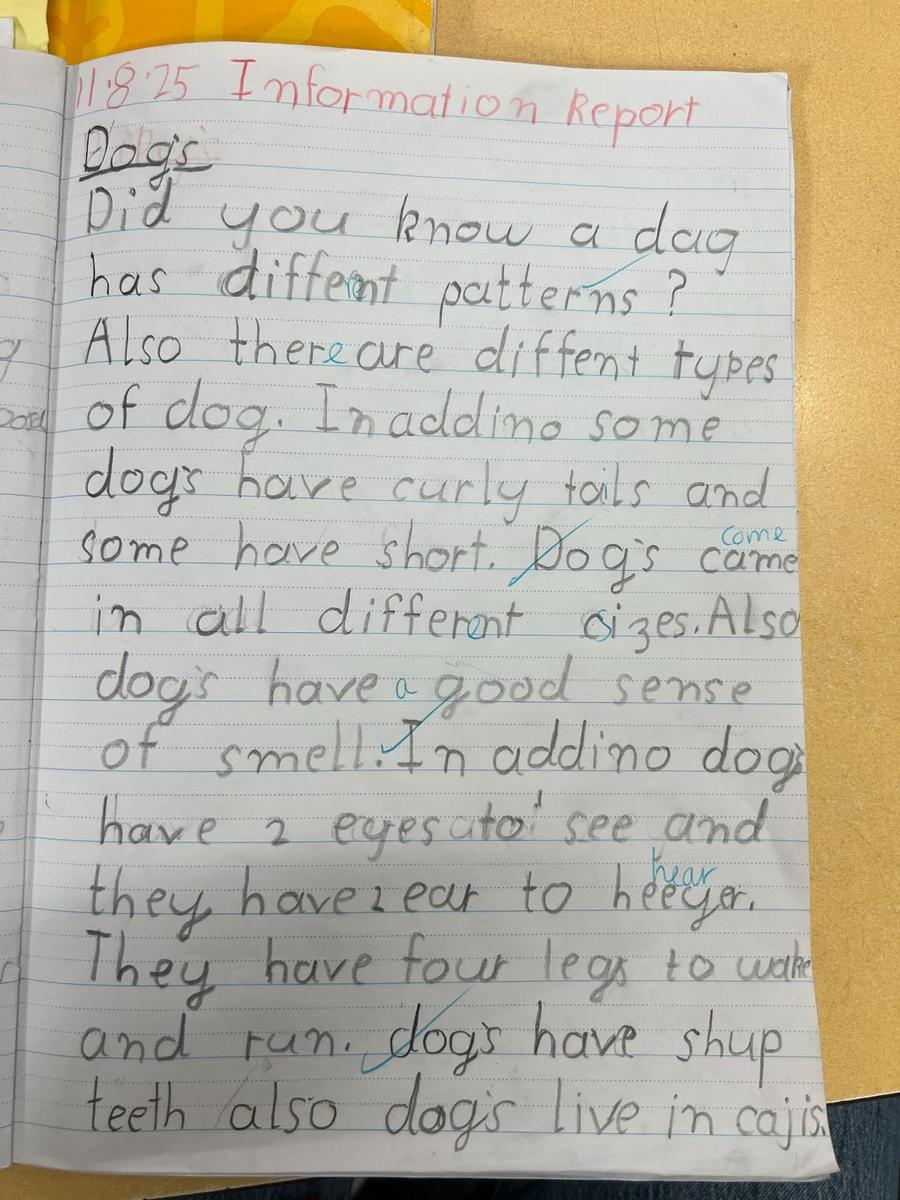 11.8.25 Information Report
Dog's
Did you know a dag
has different patterns?
Also there are diffent types
of dog. In addino some
dog's have curly tails and
some have short. Dog's came
come
in all different sizes. Also
dog's have a good sense
of smell. In addino dog's
have 2 eyes to see and
they have 2 ear to heeyer.
hear
They have four legs to wake
and run. dog's have shup
teeth also dog's live in cajis.